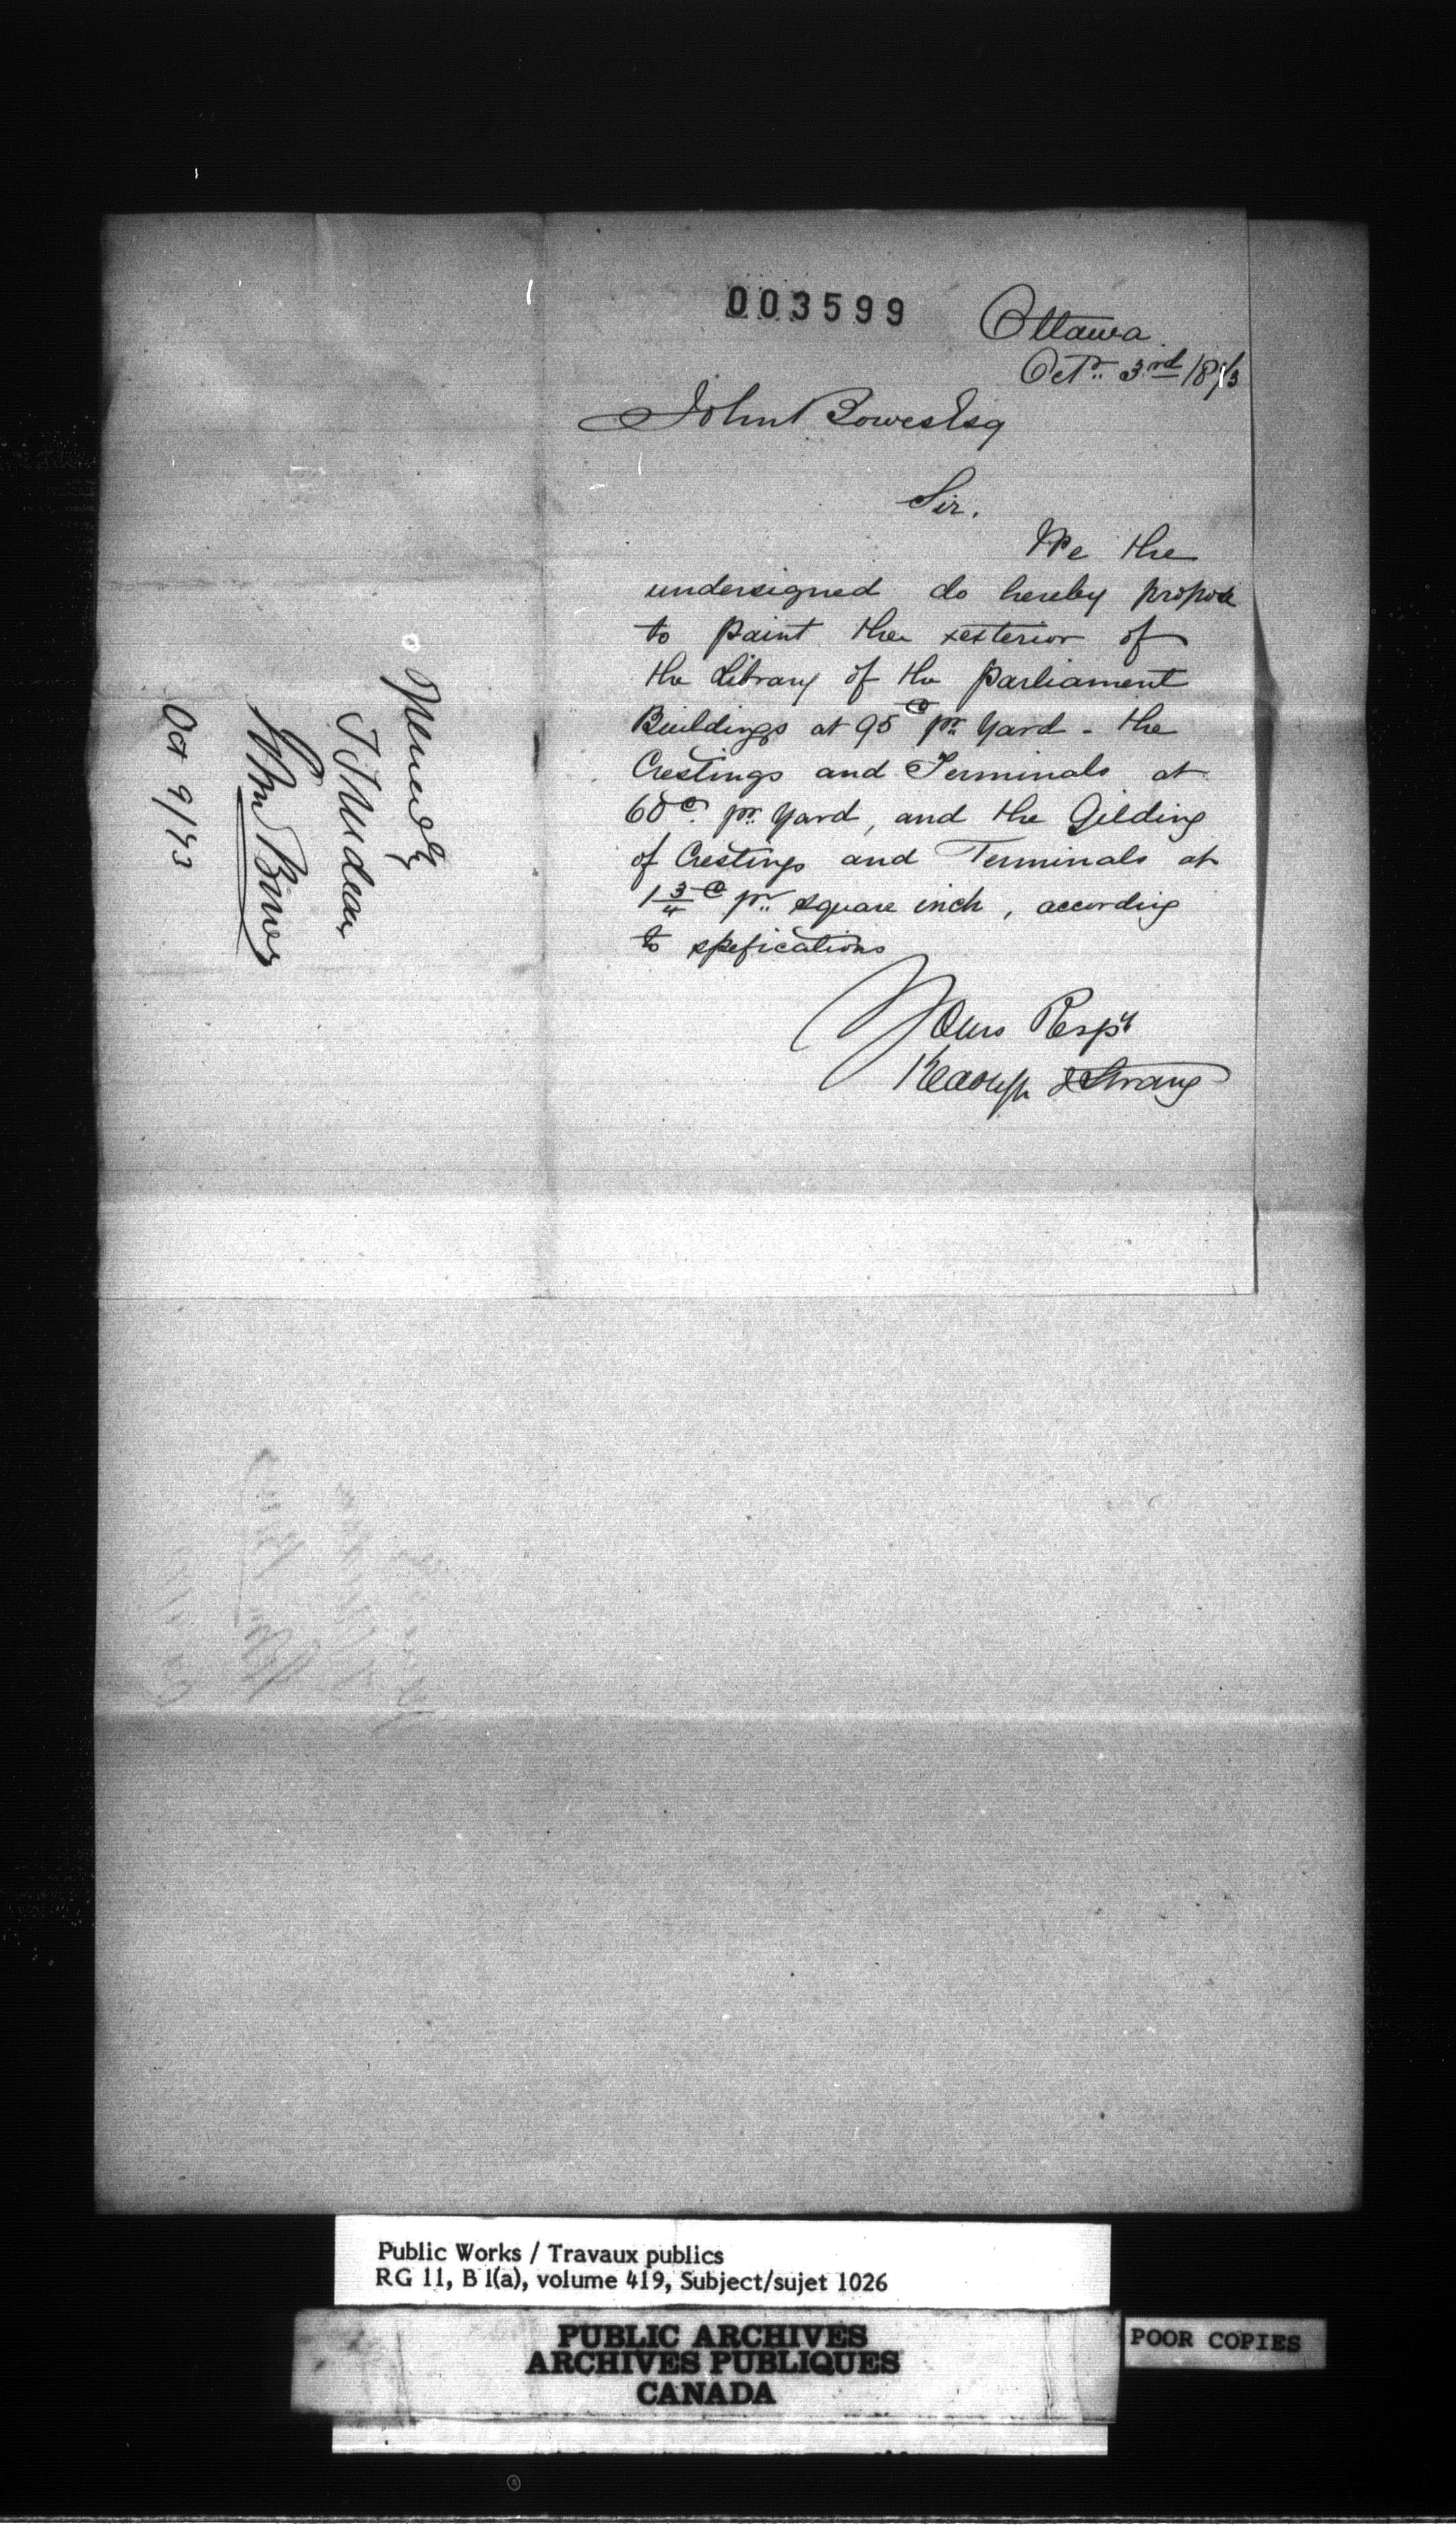 003599
Ottawa.
Oct.. 3rd /873
John Bowes Esq
Sir.
We the
undersigned do hereby propose
to paint the exterior of
the Library of the Parliament
Buildings at 95c pr Yard - the
Crestings and Terminals at
60c. pr. yard, and the Gilding
of Crestings and Terminals at
1 3/4 c pr.. square inch, according
to spefications
Yours Respt
& Strang
Opened by
T Trudeau
John Bowes
Oct 9/73
Public Works / Travaux publics
RG 11, B 1(a), volume 419, Subject/sujet 1026
PUBLIC ARCHIVES
ARCHIVES PUBLIQUES
CANADA
POOR COPIES